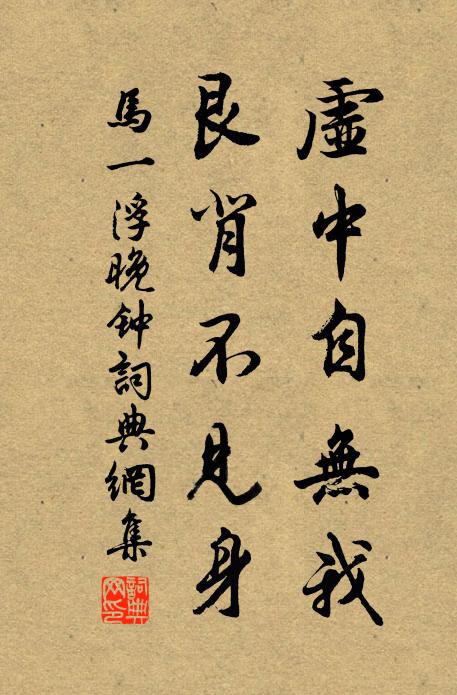 虛中自無我
艮背不見身
馬一浮晚钟詞典網集
詞典网印